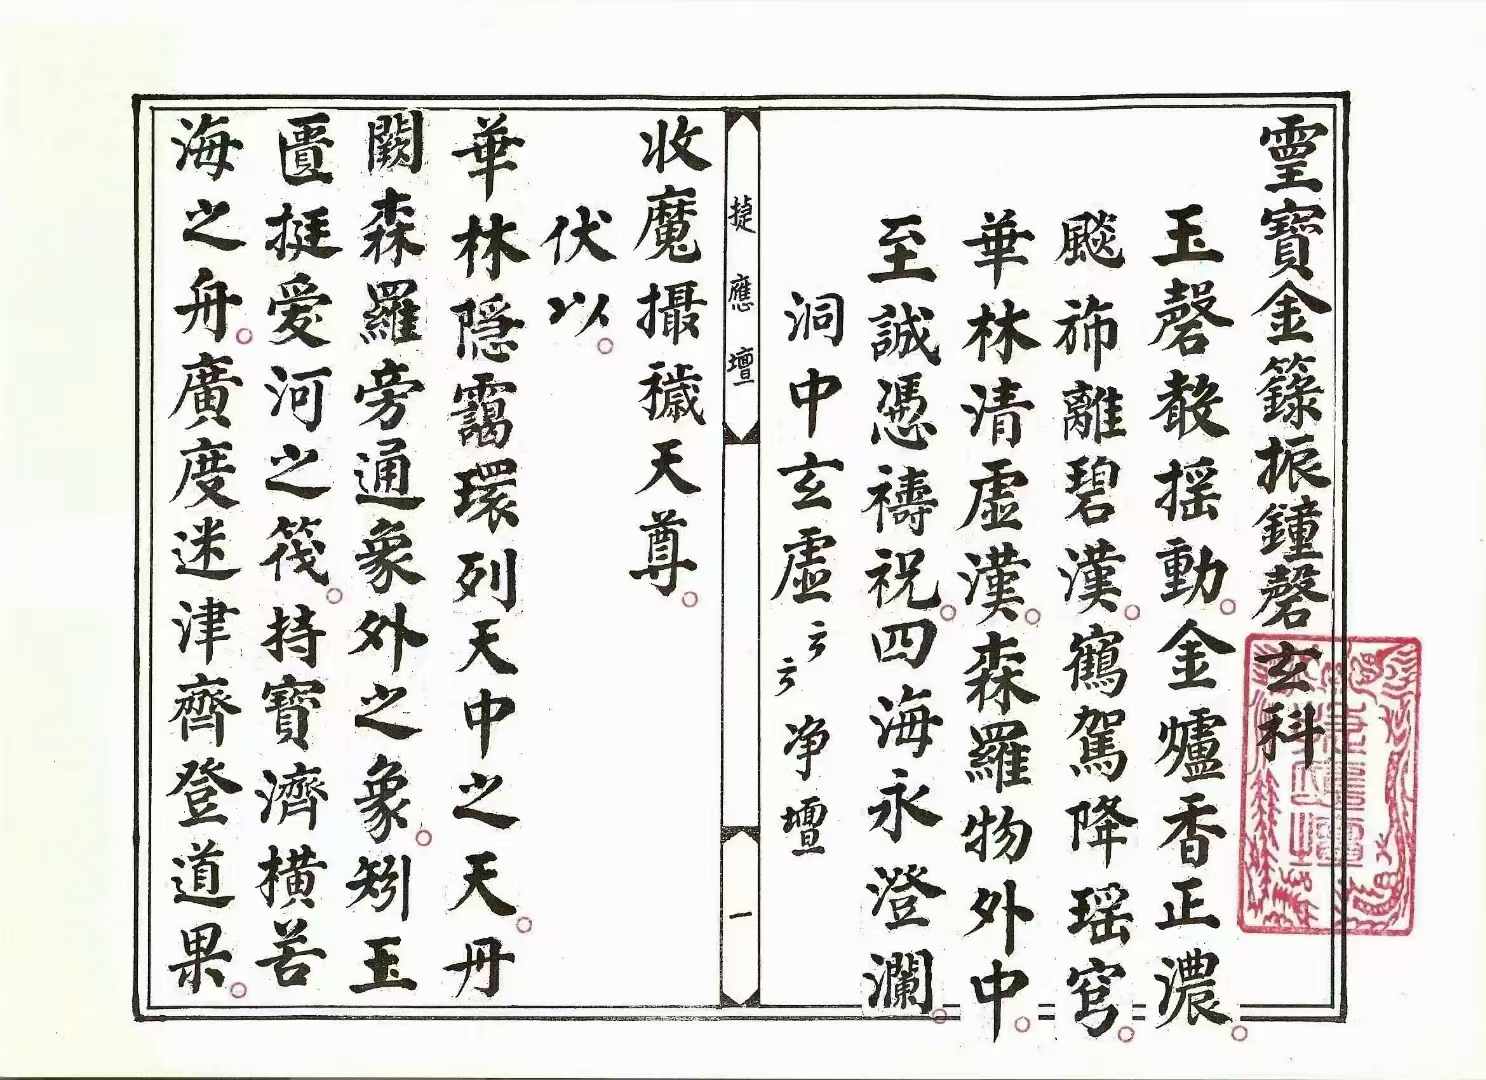 霊寶金籙振鐘磬玄科
玉磬敲揺動。金爐香正濃。
飈斾離碧漢。鶴駕降瑶穹。
華林清虚漢。森羅物外中。
至誠憑禱祝。四海永澄瀾。
洞中玄虚云云净壇
㨗應壇
一
收魔攝穢天尊
伏以。
華林隠靄環列天中之天。丹
闕森羅旁通象外之象。矧玉
匱挺爱河之筏。持寶濟横苦
海之舟。廣度迷津齊登道果。